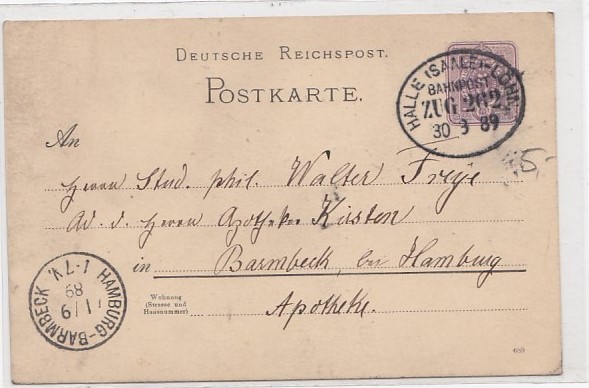 DEUTSCHE REICHSPOST.
POSTKARTE.
HALLE (SAALE)-LÖHN.
BAHNPOST
ZUG 262
30 3 89
An
Herrn Stud. phil. Walter Freye
Ad. d. Herrn Apotheker Kirsten
in Barmbeck, bei Hamburg
Wohnung
(Strasse und
Hausnummer)
Apotheke.
HAMBURG-BARMBECK
89
1-7N.
689